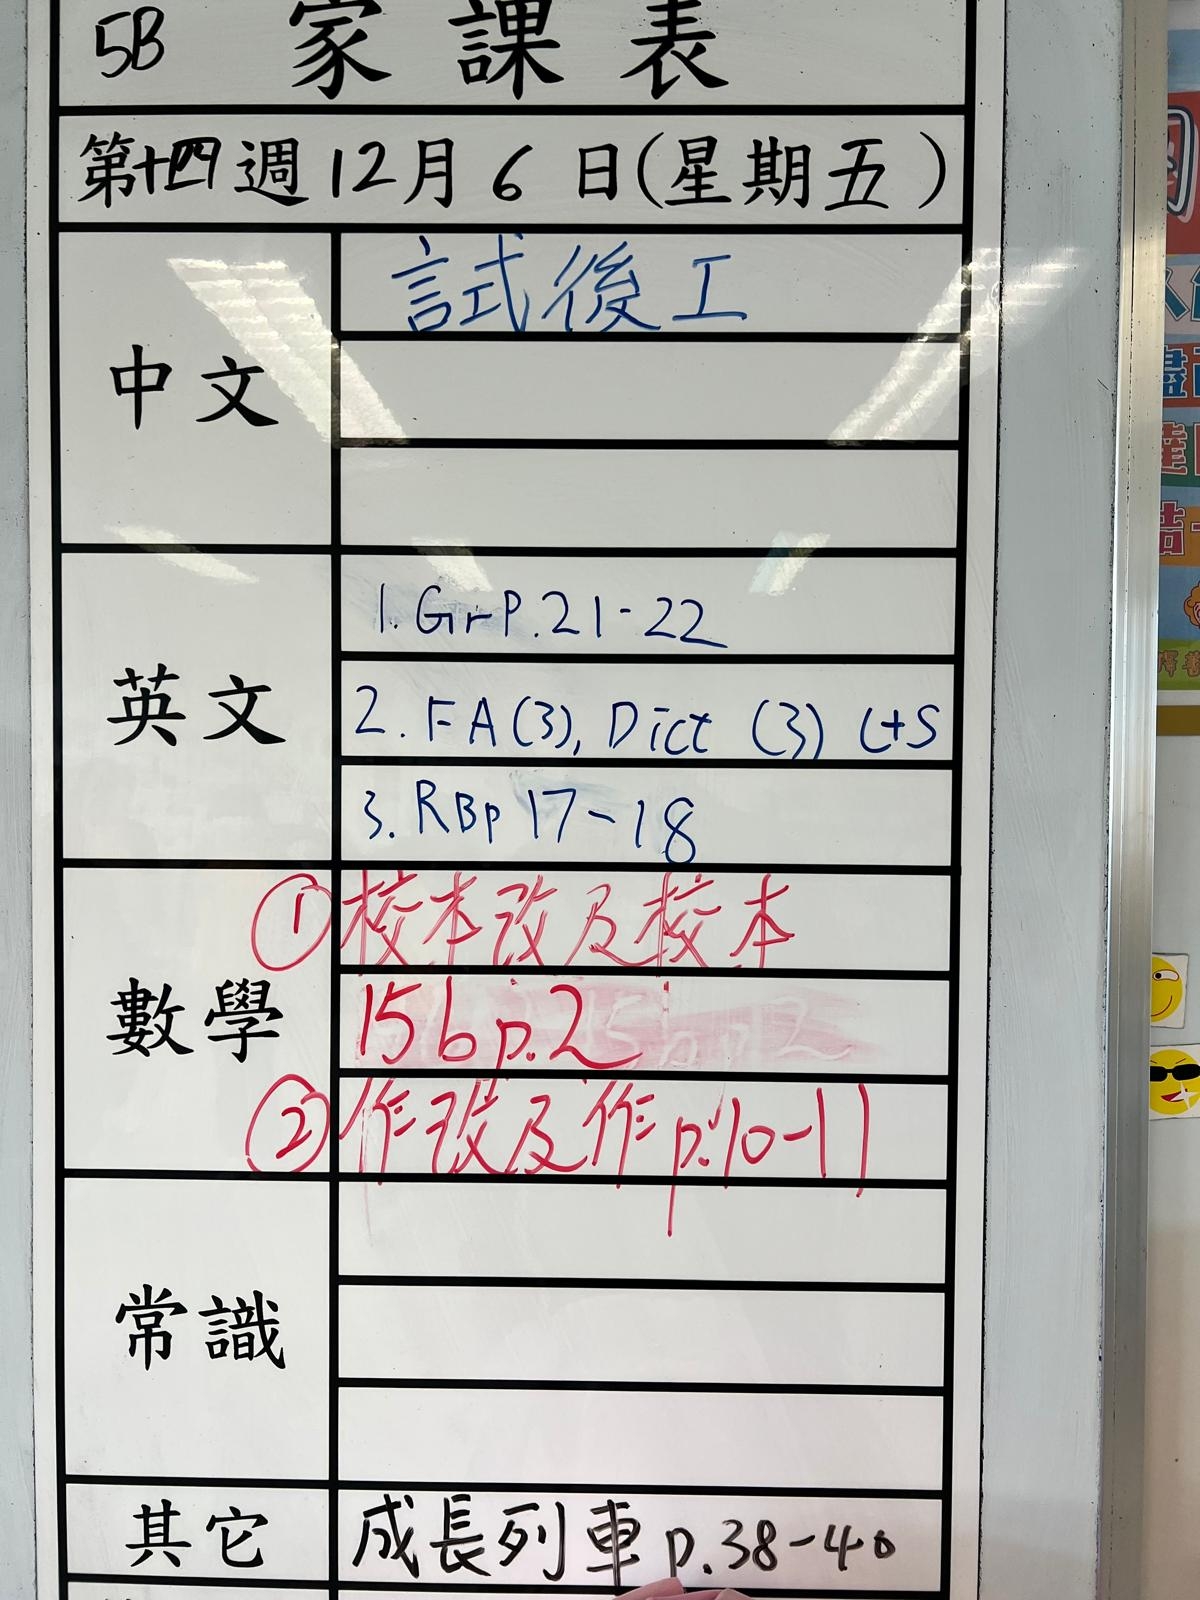 5B 家課表
第十四週12月6日(星期五)
中文
試後工
英文
1. Gr P.21-22
2. FA(3), Dict (3) (+S
3. RBp 17-18
數學
① 校本改及校本
15b p.2
② 作改及作p.10-11
常識
其它
成長列車 p.38-40